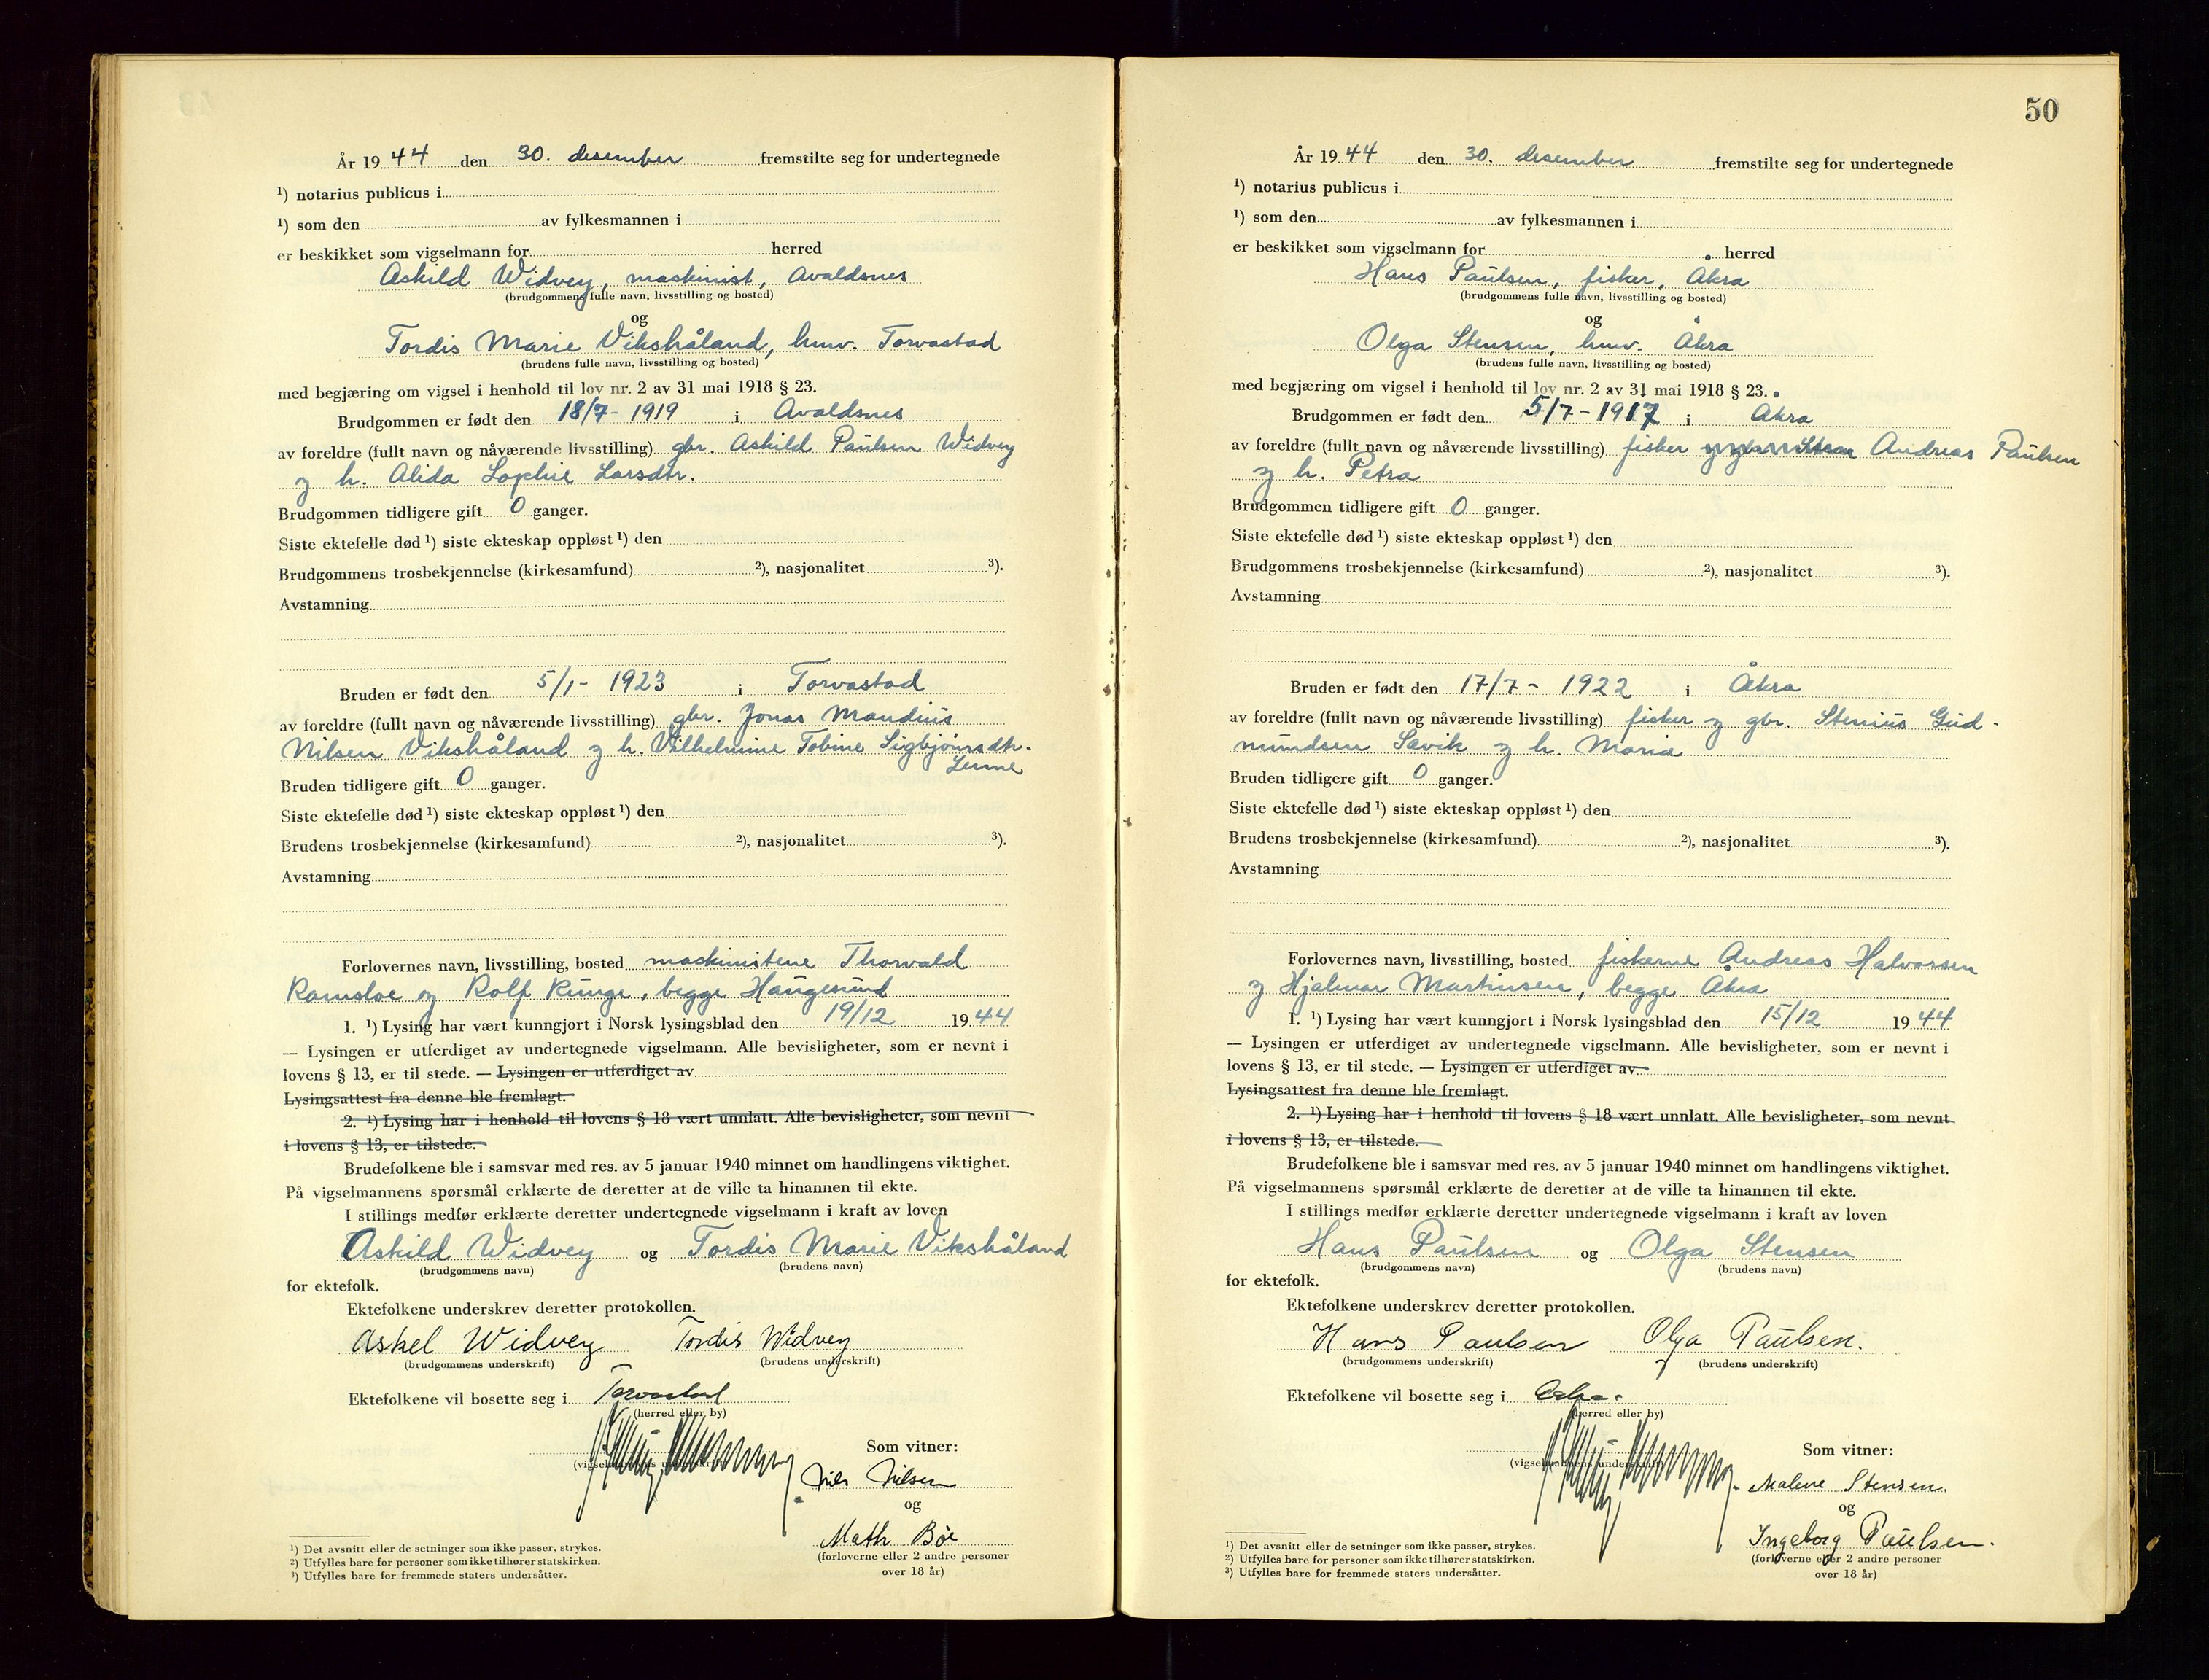 År 1944 den 30. desember fremstilte seg for undertegnede
¹) notarius publicus i
¹) som den av fylkesmannen i
er beskikket som vigselmann for herred
Askild Widvey, maskinist, Avaldsnes
(brudgommens fulle navn, livsstilling og bosted)
og
Tordis Marie Vikshåland, hmv. Torvastad
(brudens fulle navn, livsstilling og bosted)
med begjæring om vigsel i henhold til lov nr. 2 av 31 mai 1918 § 23.
Brudgommen er født den 18/7 - 1919 i Avaldsnes
av foreldre (fullt navn og nåværende livsstilling) gbr. Askild Paulsen Widvey
og h. Alida Sophie Larsdtr.
Brudgommen tidligere gift 0 ganger.
Siste ektefelle død ¹) siste ekteskap oppløst ¹) den
Brudgommens trosbekjennelse (kirkesamfund) ²), nasjonalitet ³).
Avstamning
Bruden er født den 5/1 - 1923 i Torvastad
av foreldre (fullt navn og nåværende livsstilling) gbr. Jonas Mandius
Nilsen Vikshåland og h. Vilhelmine Tobine Sigbjørnsdtr.
Bruden tidligere gift 0 ganger.
Siste ektefelle død ¹) siste ekteskap oppløst ¹) den
Brudens trosbekjennelse (kirkesamfund) ²), nasjonalitet ³).
Avstamning
Forlovernes navn, livsstilling, bosted maskinistene Thorvald
Ramsloe og Rolf Runge, begge Haugesund
1. ¹) Lysing har vært kunngjort i Norsk lysingsblad den 19/12 1944
— Lysingen er utferdiget av undertegnede vigselmann. Alle bevisligheter, som er nevnt i
lovens § 13, er til stede. — Lysingen er utferdiget av
Lysingsattest fra denne ble fremlagt.
2. ¹) Lysing har i henhold til lovens § 18 vært unnlatt. Alle bevisligheter, som nevnt
i lovens § 13, er tilstede.
Brudefolkene ble i samsvar med res. av 5 januar 1940 minnet om handlingens viktighet.
På vigselmannens spørsmål erklærte de deretter at de ville ta hinannen til ekte.
I stillings medfør erklærte deretter undertegnede vigselmann i kraft av loven
Askild Widvey og Tordis Marie Vikshåland
(brudgommens navn) (brudens navn)
for ektefolk.
Ektefolkene underskrev deretter protokollen.
Askel Widvey Tordis Widvey
(brudgommens underskrift) (brudens underskrift)
Ektefolkene vil bosette seg i Torvastad
(herred eller by)
Som vitner:
(vigselmannens underskrift)
Nils Nilsen
og
Math Bøe
(forloverne eller 2 andre personer
over 18 år)
¹) Det avsnitt eller de setninger som ikke passer, strykes.
²) Utfylles bare for personer som ikke tilhører statskirken.
³) Utfylles bare for fremmede staters undersåtter.
50
År 1944 den 30. desember fremstilte seg for undertegnede
¹) notarius publicus i
¹) som den av fylkesmannen i
er beskikket som vigselmann for herred
Hans Paulsen, fisker, Åkra
(brudgommens fulle navn, livsstilling og bosted)
og
Olga Stensen, hmv. Åkra
(brudens fulle navn, livsstilling og bosted)
med begjæring om vigsel i henhold til lov nr. 2 av 31 mai 1918 § 23.
Brudgommen er født den 5/7 - 1917 i Åkra
av foreldre (fullt navn og nåværende livsstilling) fisker Andreas Paulsen
og h. Petra
Brudgommen tidligere gift 0 ganger.
Siste ektefelle død ¹) siste ekteskap oppløst ¹) den
Brudgommens trosbekjennelse (kirkesamfund) ²), nasjonalitet ³).
Avstamning
Bruden er født den 17/7 - 1922 i Åkra
av foreldre (fullt navn og nåværende livsstilling) fisker og gbr. Stenius Gud-
mundsen Sævik og h. Maria
Bruden tidligere gift 0 ganger.
Siste ektefelle død ¹) siste ekteskap oppløst ¹) den
Brudens trosbekjennelse (kirkesamfund) ²), nasjonalitet ³).
Avstamning
Forlovernes navn, livsstilling, bosted fiskerne Andreas Halvorsen
og Hjalmar Martinsen, begge Åkra
1. ¹) Lysing har vært kunngjort i Norsk lysingsblad den 15/12 1944
— Lysingen er utferdiget av undertegnede vigselmann. Alle bevisligheter, som er nevnt i
lovens § 13, er til stede. — Lysingen er utferdiget av
Lysingsattest fra denne ble fremlagt.
2. ¹) Lysing har i henhold til lovens § 18 vært unnlatt. Alle bevisligheter, som nevnt
i lovens § 13, er tilstede.
Brudefolkene ble i samsvar med res. av 5 januar 1940 minnet om handlingens viktighet.
På vigselmannens spørsmål erklærte de deretter at de ville ta hinannen til ekte.
I stillings medfør erklærte deretter undertegnede vigselmann i kraft av loven
Hans Paulsen og Olga Stensen
(brudgommens navn) (brudens navn)
for ektefolk.
Ektefolkene underskrev deretter protokollen.
Hans Paulsen Olga Paulsen.
(brudgommens underskrift) (brudens underskrift)
Ektefolkene vil bosette seg i Åkra.
(herred eller by)
Som vitner:
(vigselmannens underskrift)
Malene Stensen.
og
Ingeborg Paulsen.
(forloverne eller 2 andre personer
over 18 år)
¹) Det avsnitt eller de setninger som ikke passer, strykes.
²) Utfylles bare for personer som ikke tilhører statskirken.
³) Utfylles bare for fremmede staters undersåtter.